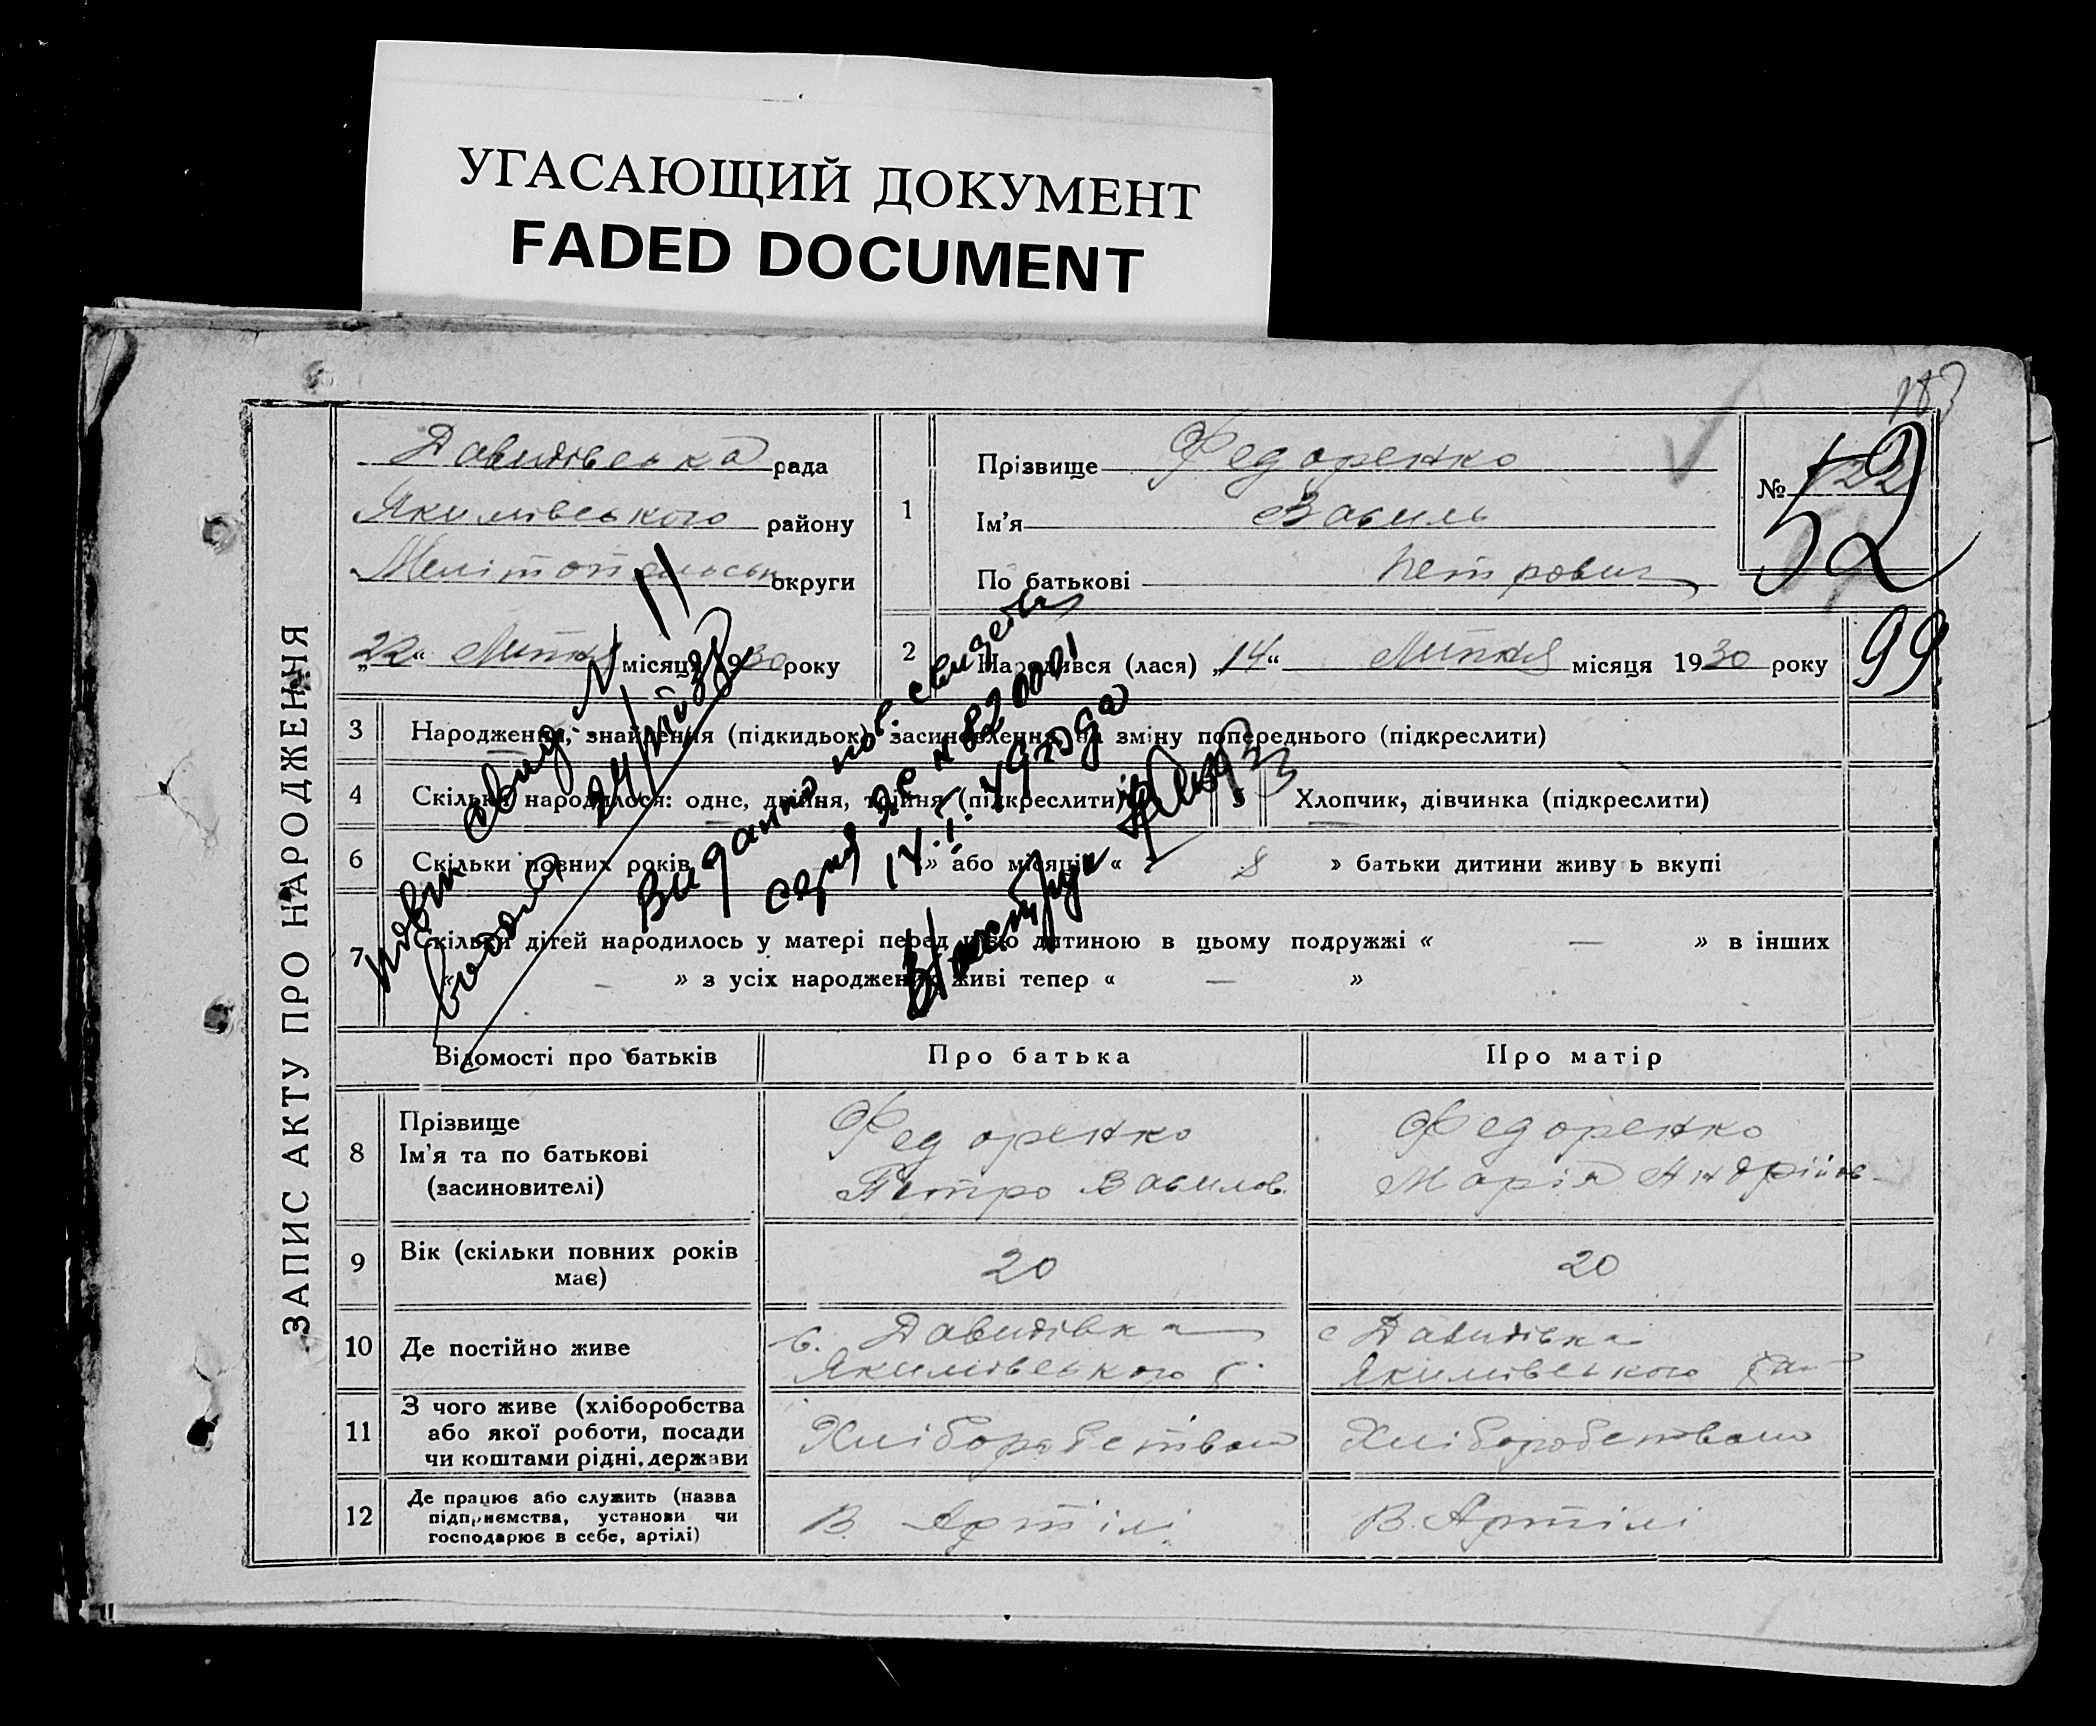 УГАСАЮЩИЙ ДОКУМЕНТ
FADED DOCUMENT
ЗАПИС АКТУ ПРО НАРОДЖЕННЯ
Давидівська рада
Якимівського району
Мелітопольськ округи
„22“ Липня місяця 1930 року
1
Прізвище Федоренко
Ім’я Василь
По батькові Петрович
№ 122
52
99
2 Народився (лася) „14“ Липня місяця 1930 року
3 Народження, знайдення (підкидьок) засиновлення на зміну попереднього (підкреслити)
4 Скільки народилося: одне, двійня, трійня (підкреслити) 5 Хлопчик, дівчинка (підкреслити)
6 Скільки повних років » або місяців « 8 » батьки дитини живу ь вкупі
7 Скільки дітей народилось у матері перед цією дитиною в цьому подружжі « — » в інших
« — » з усіх народжених живі тепер « — »
повт свид N 11
24/
Видано пов. свидет
серия ЯС N 820001
14.I.49 года
Відомості про батьків Про батька Про матір
8 Прізвище
Ім’я та по батькові
(засиновителі)
Федоренко
Петро Васильов.
Федоренко
Марія Андріїв
9 Вік (скільки повних років
має)
20
20
10 Де постійно живе
с. Давидівка
Якимівського р.
с Давидівка
Якимівського рай
11 З чого живе (хліборобства
або якої роботи, посади
чи коштами рідні, держави
Хліборобством
Хліборобством
12 Де працює або служить (назва
підприємства, установи чи
господарює в себе, артілі)
В. Артілі
В. Артілі